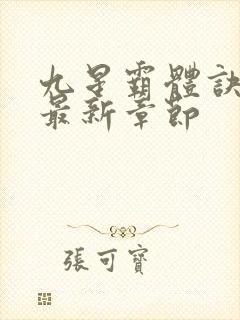 九星霸體訣
最新章節
張可寶